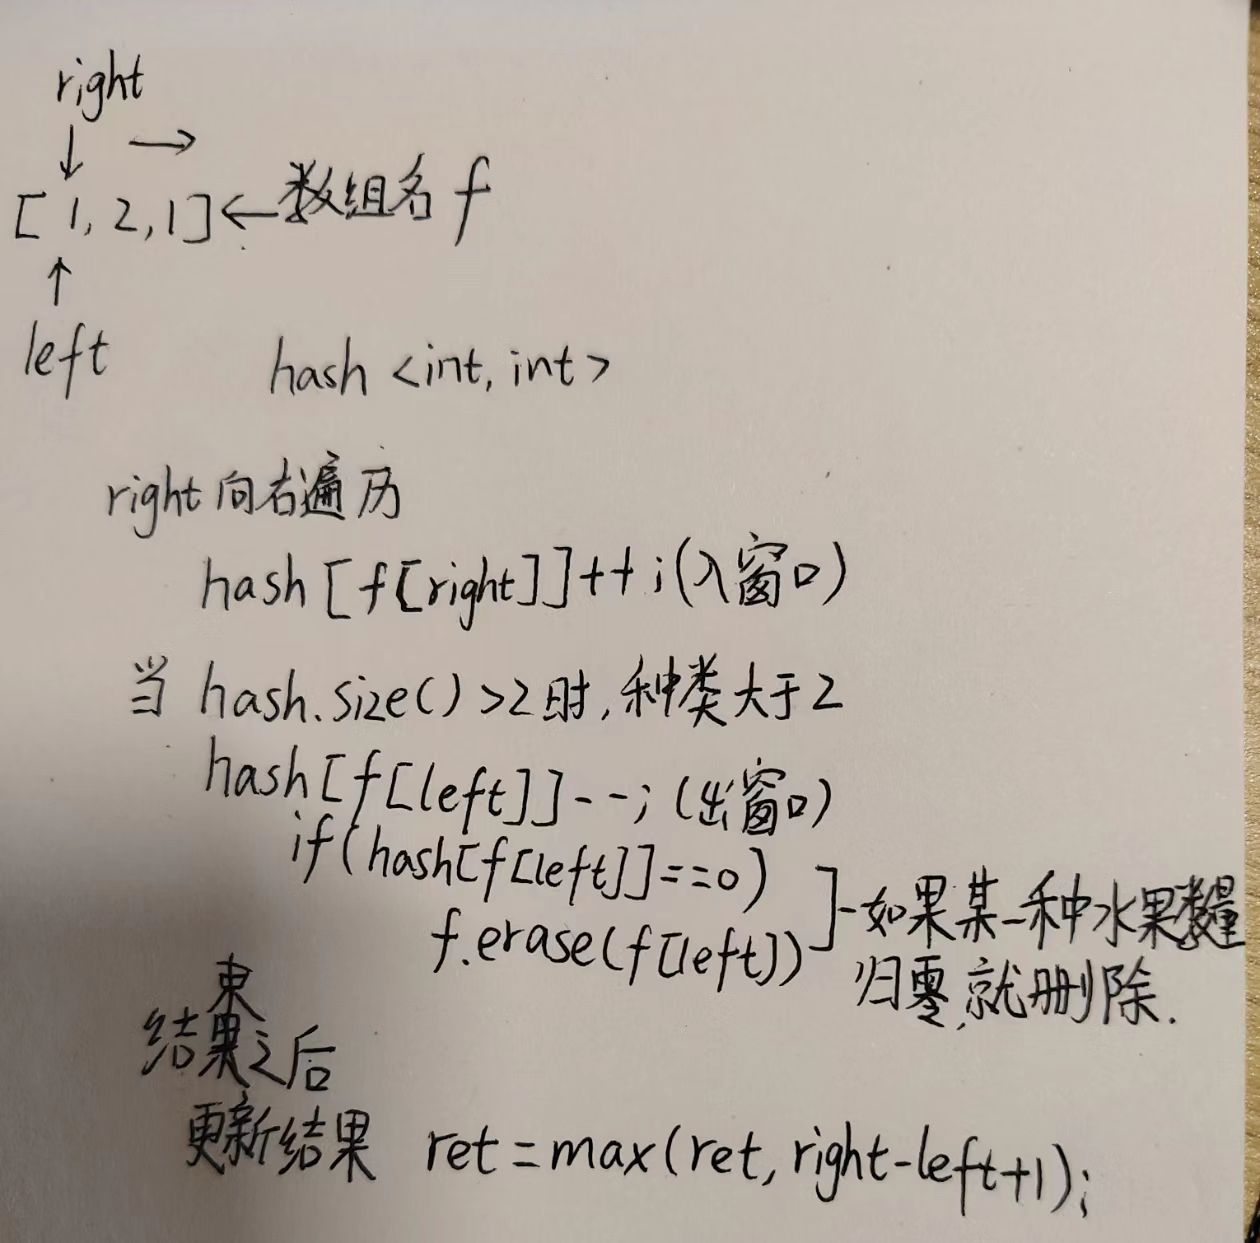 right
↓ →
[1,2,1]←数组名 f
↑
left
hash <int, int>
right向右遍历
hash[f[right]]++;(入窗口)
当 hash.size()>2时,种类大于2
hash[f[left]]--;(出窗口)
if(hash[f[left]]==0)
f.erase(f[left])
]-如果某一种水果数量
归零,就删除.
束
结果之后
更新结果 ret=max(ret,right-left+1);